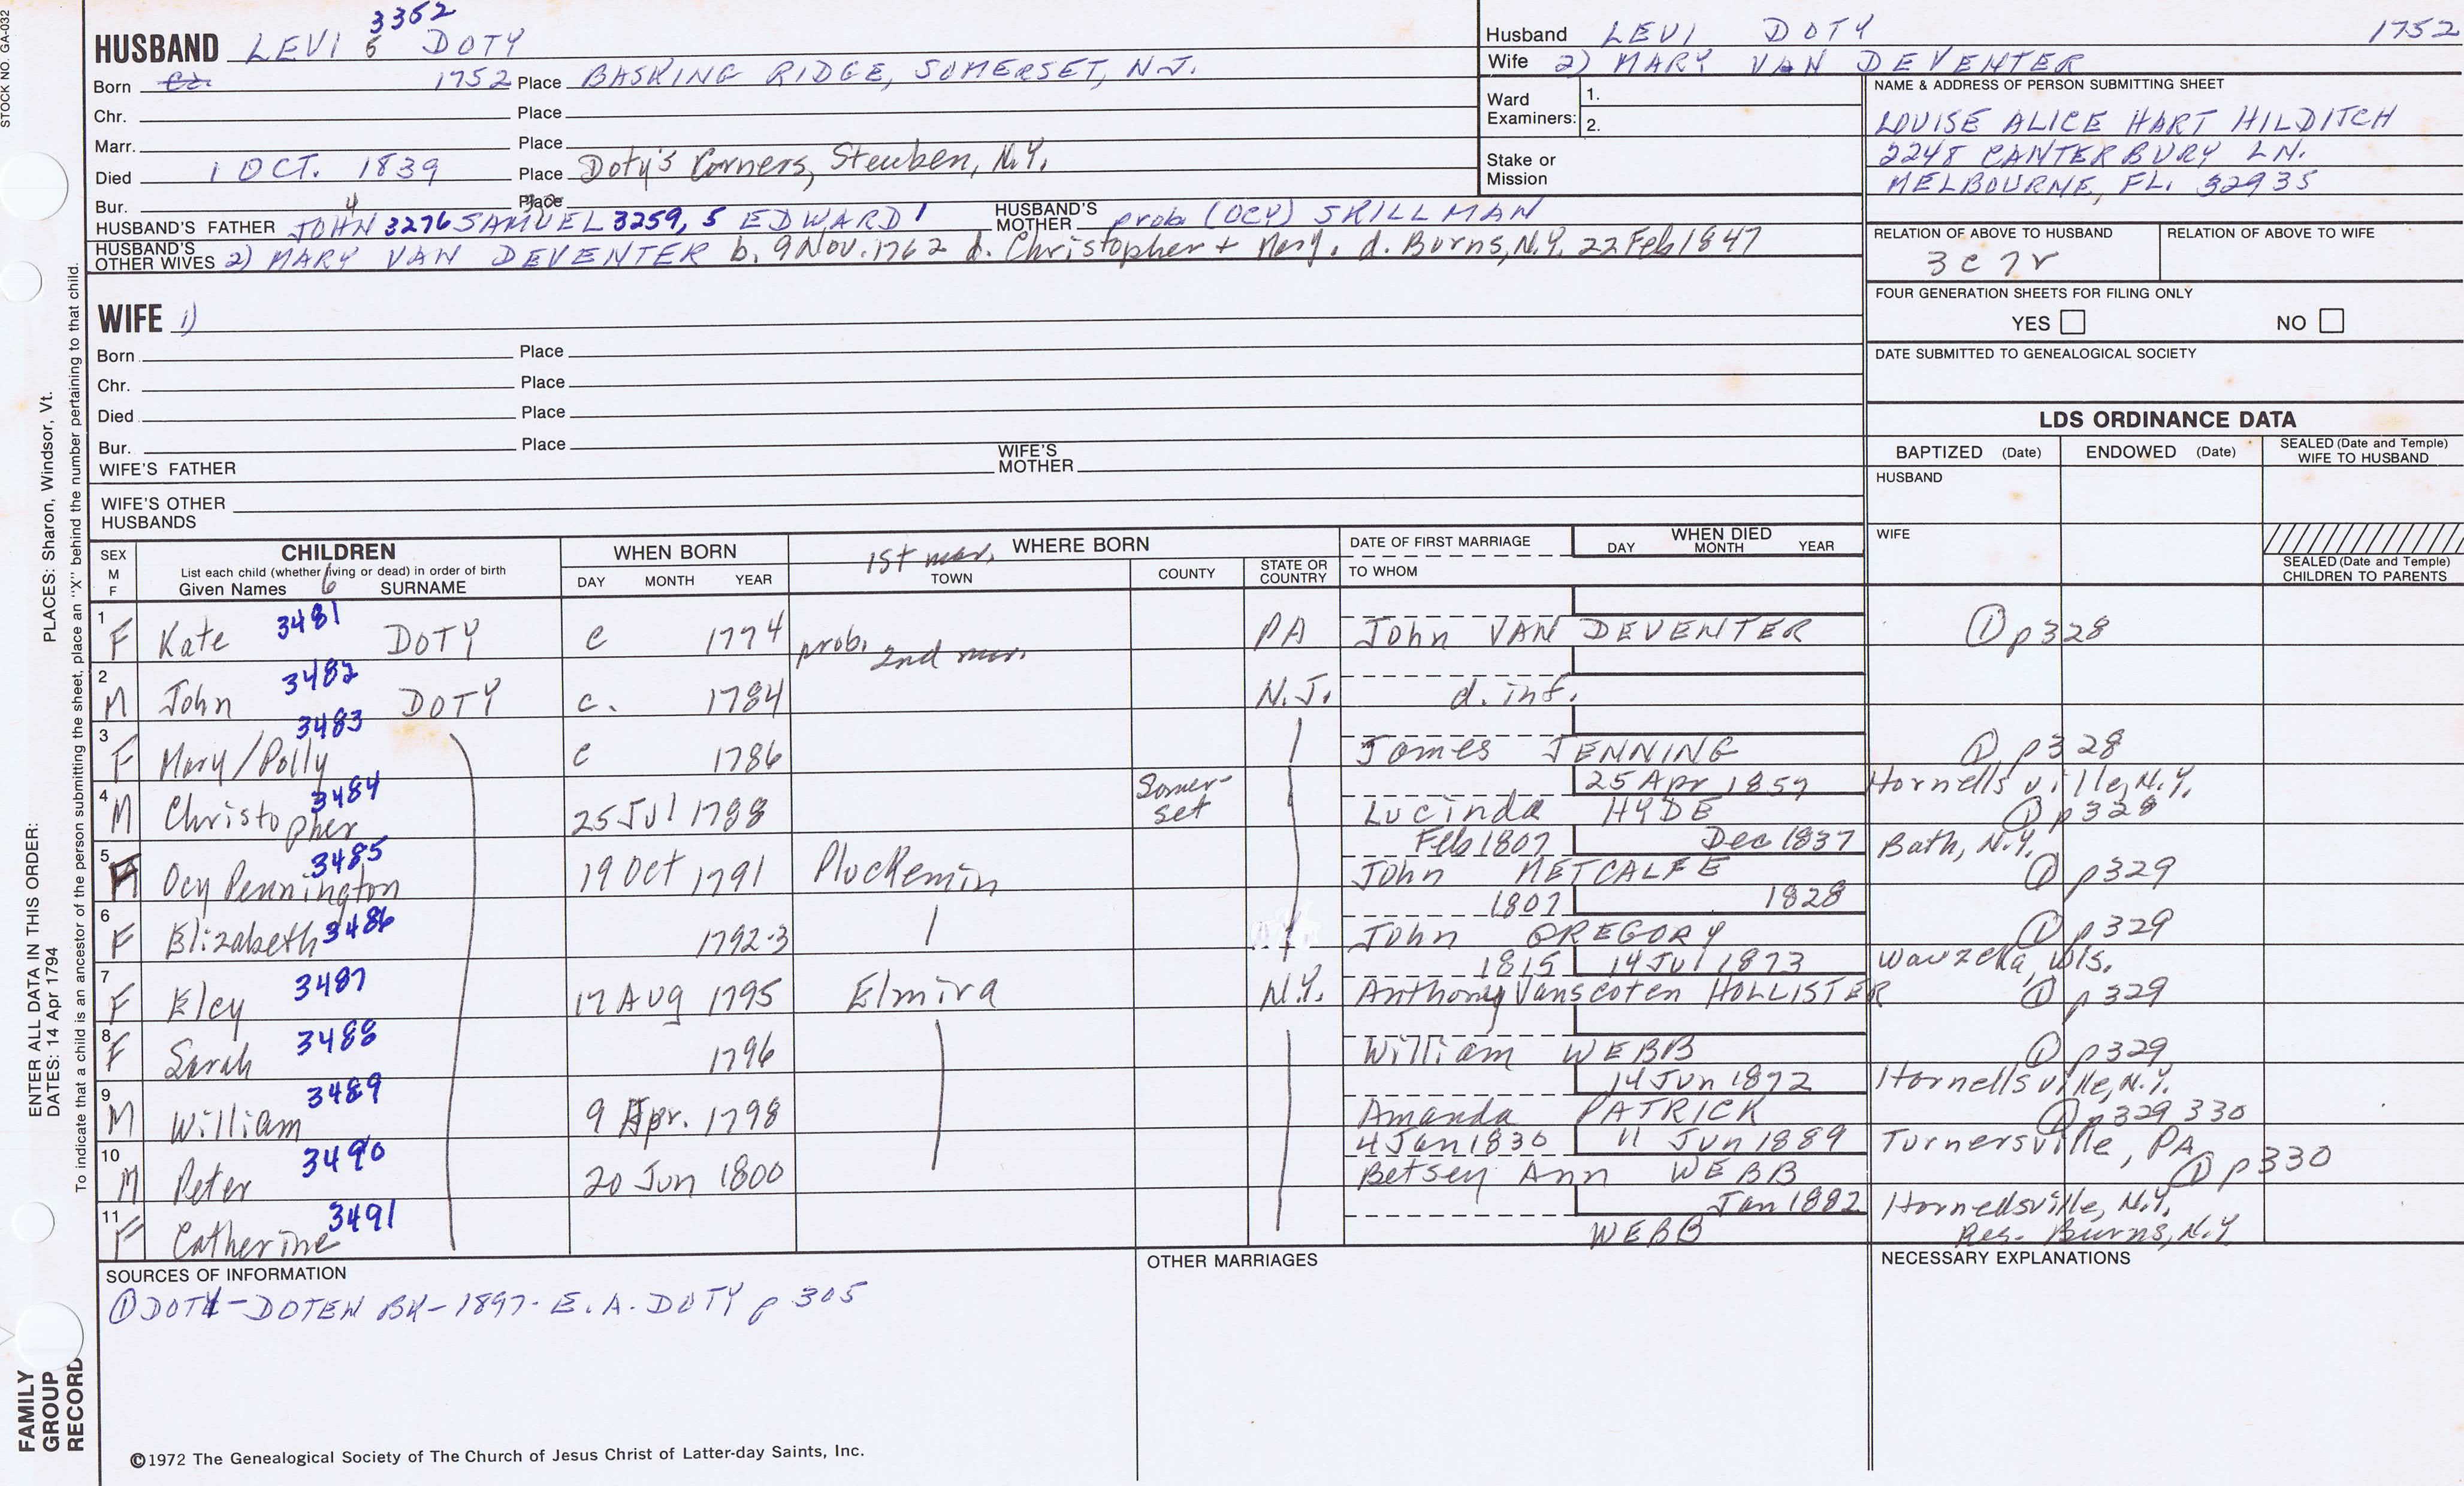 STOCK NO. GA-032
3352
HUSBAND LEVI 5 DOTY
Born ca. 1752 Place BASKING RIDGE, SOMERSET, N.J.
Chr. Place
Marr. Place
Died 1 OCT. 1839 Place Doty's Corners, Steuben, N.Y.
Bur. Place
HUSBAND'S FATHER JOHN 4 3276 SAMUEL 3259, 5 EDWARD 1 HUSBAND'S MOTHER prob. (OCY) SKILLMAN
HUSBAND'S OTHER WIVES 2) MARY VAN DEVENTER b. 9 Nov. 1762 d. Christopher + Mary. d. Burns, N.Y. 22 Feb 1847
Husband LEVI DOTY 1752
Wife 2) MARY VAN DEVENTER
Ward Examiners: 1.
2.
Stake or Mission
NAME & ADDRESS OF PERSON SUBMITTING SHEET
LOUISE ALICE HART HILDITCH
2248 CANTERBURY LN.
MELBOURNE, FL. 32935
RELATION OF ABOVE TO HUSBAND RELATION OF ABOVE TO WIFE
3c7r
FOUR GENERATION SHEETS FOR FILING ONLY
YES NO
DATE SUBMITTED TO GENEALOGICAL SOCIETY
WIFE 1)
Born Place
Chr. Place
Died Place
Bur. Place
WIFE'S FATHER WIFE'S MOTHER
WIFE'S OTHER HUSBANDS
LDS ORDINANCE DATA
BAPTIZED (Date) ENDOWED (Date) SEALED (Date and Temple) WIFE TO HUSBAND
HUSBAND
WIFE
SEALED (Date and Temple) CHILDREN TO PARENTS
SEX M F CHILDREN WHEN BORN 1st mar. WHERE BORN DATE OF FIRST MARRIAGE WHEN DIED
List each child (whether living or dead) in order of birth
Given Names 6 SURNAME DAY MONTH YEAR TOWN COUNTY STATE OR COUNTRY TO WHOM DAY MONTH YEAR
1 F Kate 3481 DOTY c 1774 prob. PA John VAN DEVENTER ① p328
2nd mar.
2 M John 3482 DOTY c. 1784 N.J. d. inf.
3 F Mary/Polly 3483 c 1786 James JENNING ① p328
25 Apr 1857 Hornellsville, N.Y.
4 M Christopher 3484 25 Jul 1788 Somerset Lucinda HYDE ① p328
Feb 1807 Dec 1837 Bath, N.Y.
5 F Ocy Pennington 3485 19 Oct 1791 Pluckemin John METCALFE ① p329
1807 1828
6 F Elizabeth 3486 1792-3 John GREGORY ① p329
1815 14 Jul 1873 Wauzeka, Wis.
7 F Eley 3487 17 Aug 1795 Elmira N.Y. Anthony Vanscoten HOLLISTER ① p329
8 F Sarah 3488 1796 William WEBB ① p329
14 Jun 1872 Hornellsville, N.Y.
9 M William 3489 9 Apr. 1798 Amanda PATRICK ① p329 330
4 Jan 1830 11 Jun 1889 Turnersville, PA
10 M Peter 3490 20 Jun 1800 Betsey Ann WEBB ① p330
Jan 1882 Hornellsville, N.Y.
11 F Catherine 3491 WEBB Res. Burns, N.Y.
SOURCES OF INFORMATION OTHER MARRIAGES NECESSARY EXPLANATIONS
① DOTY-DOTEN BK-1897- E.A. DOTY p 305
©1972 The Genealogical Society of The Church of Jesus Christ of Latter-day Saints, Inc.
FAMILY GROUP RECORD
ENTER ALL DATA IN THIS ORDER: PLACES: Sharon, Windsor, Vt.
DATES: 14 Apr 1794
To indicate that a child is an ancestor of the person submitting the sheet, place an "X" behind the number pertaining to that child.